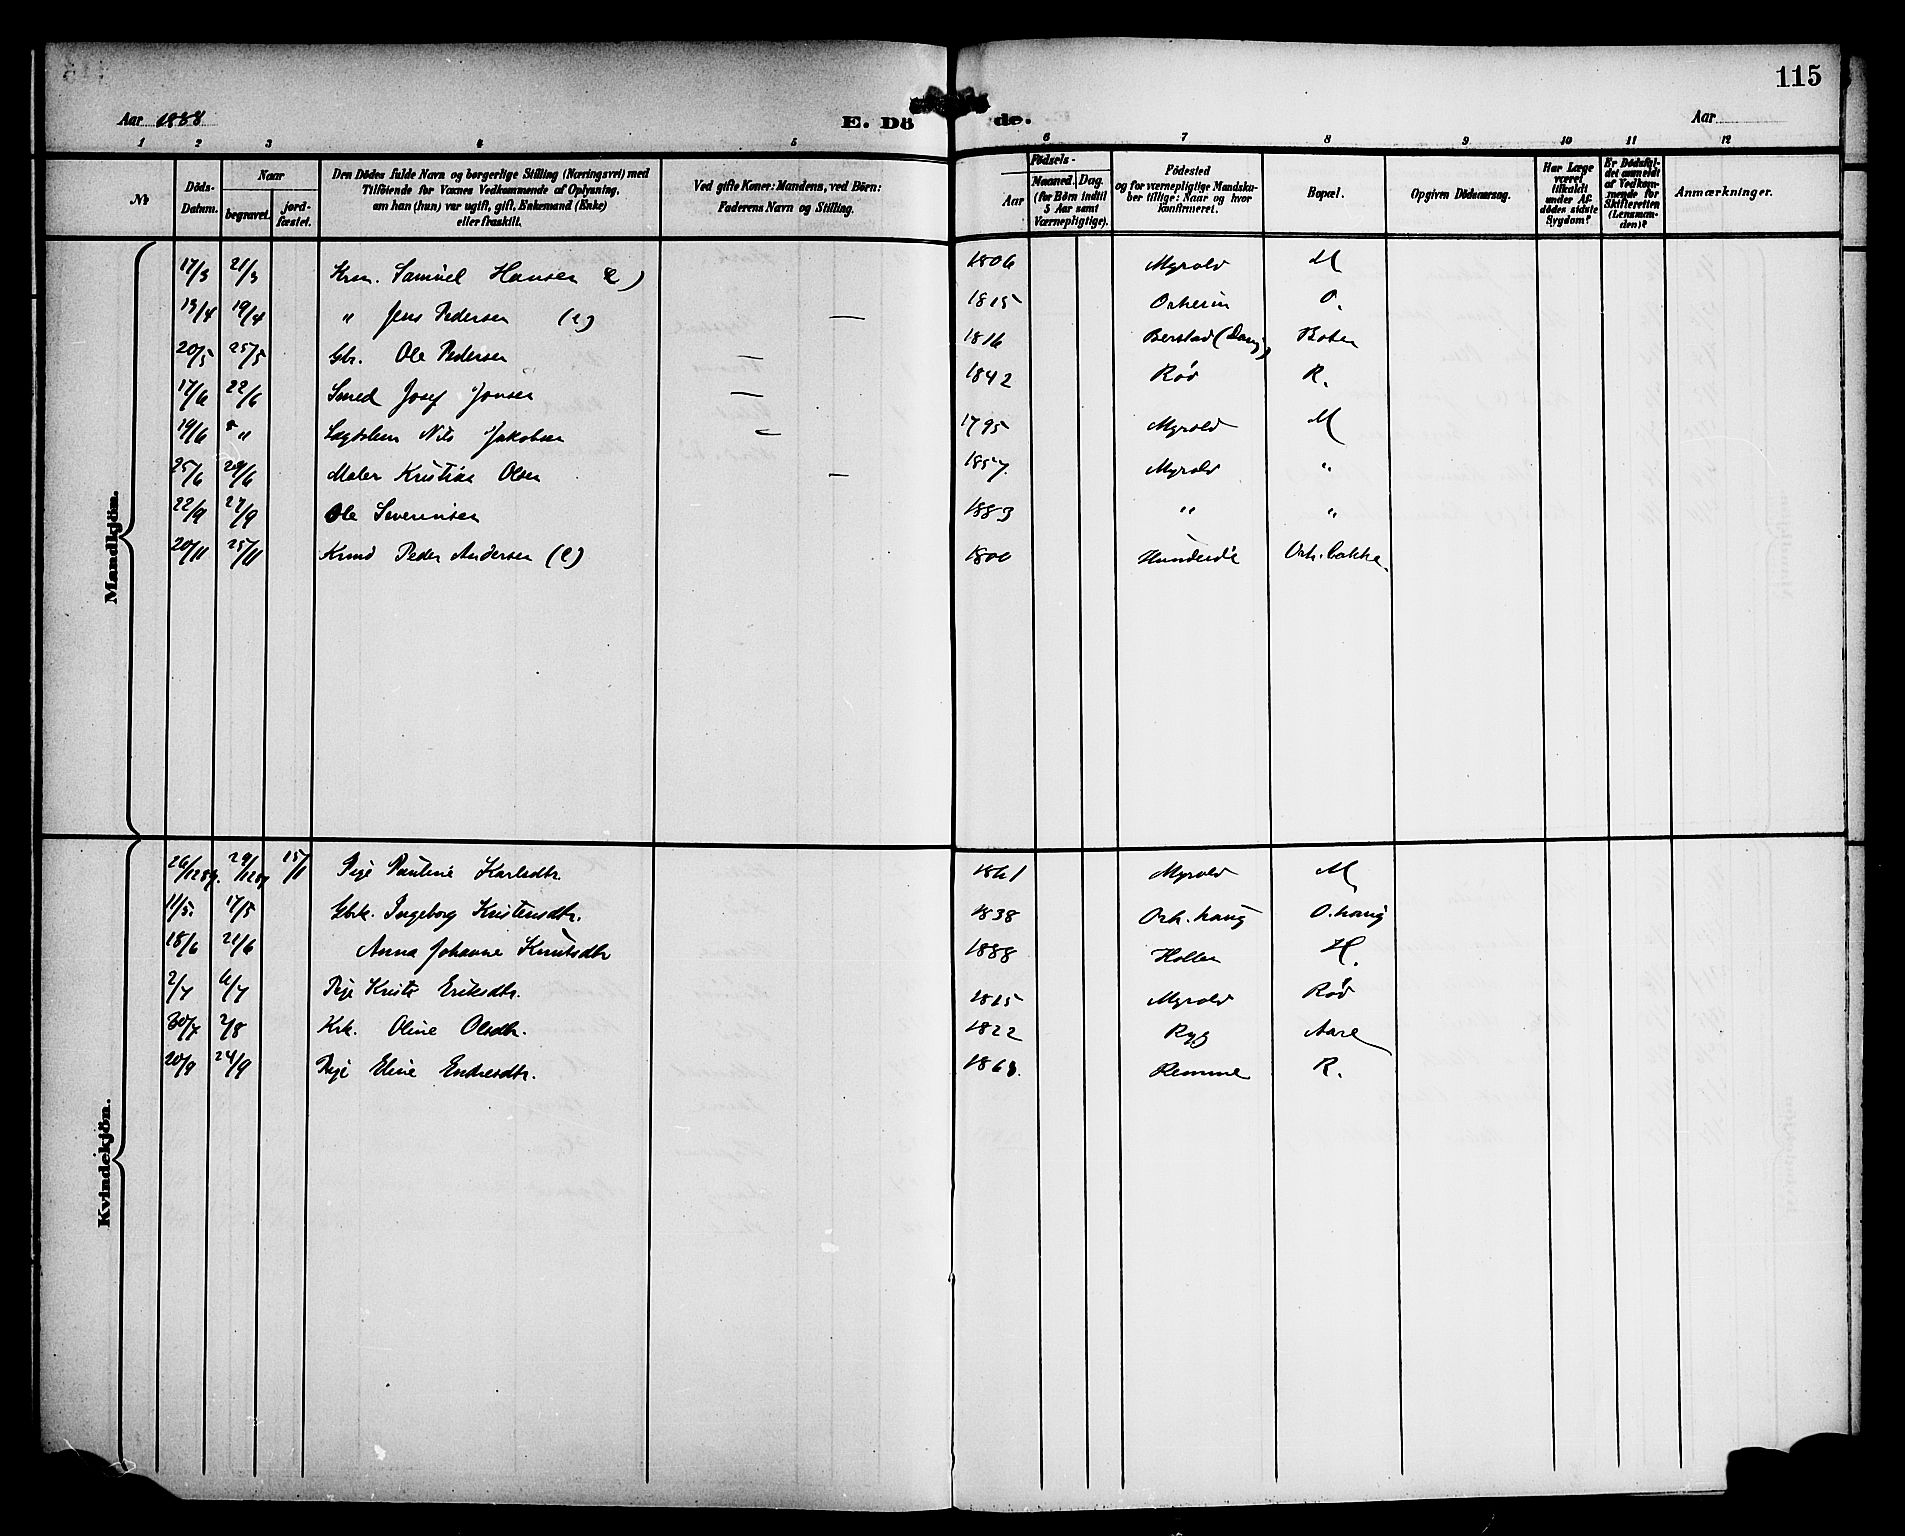 115
Aar 1888
E. Dö de.
Aar
1 2 3 4 5 6 7 8 9 10 11 12
No
Döds-Datum.
Naar
begravet.
jord-fæstet.
Den Dödes fulde Navn og borgerlige Stilling (Næringsvei) med
Tilföiende for Voxnes Vedkommende af Oplysning,
om han (hun) var ugift, gift, Enkemand (Enke)
eller fraskilt.
Ved gifte Koner: Mandens, ved Börn:
Faderens Navn og Stilling.
Födsels-
Aar
Maaned. Dag.
(for Börn indtil
5 Aar samt
Værnepligtige).
Födested
og for værnepligtige Mandska-
ber tillige: Naar og hvor
konfirmeret.
Bopæl.
Opgiven Dödsaarsag.
Har Læge
været
tilkaldt
under Af-
dödes sidste
Sygdom?
Er Dödsfal-
det anmeldt
af Vedkom-
mende for
Skifteretten
(Lensman-
den)?
Anmærkninger.
Mandkjön.
17/3 21/3 Krm. Samuel Hansen 1806 Myrold M
13/4 19/4 " Jens Pedersen (e) — 1815 Oskeim O.
20/5 25/5 Gbr. Ole Pedersen — 1816 Berstad Boten
17/6 22/6 Smed Josef Jonsen — 1842 Röd R.
19/6 " Nils Jakobsen — 1795 Myrold M
25/6 29/6 Maler Kristian Olsen — 1857. Myrold "
22/9 27/9 Ole Severinsen 1883 " "
20/11 25/11 Knud Peder Andersen (e) 1800 Osk. bakke.
Kvindekjön.
26/12 87. 29/12 87 15/1 Pige Pauline Karlsdtr. 1861 Myrold M
11/5. 17/5 Gbrk. Ingeborg Kristensdtr. 1838 Osk. haug O. haug
18/6 21/6 Anna Johanne Knutsdtr 1888 Hollen H.
2/7 6/7 Pige Kristi Eriksdtr. 1815 Myrold Röd
30/7 2/8 Krk. Oline Olsdtr. 1822 Ryg Aare
20/9 24/9 Pige Eline Endresdtr. 1868. Remme R.